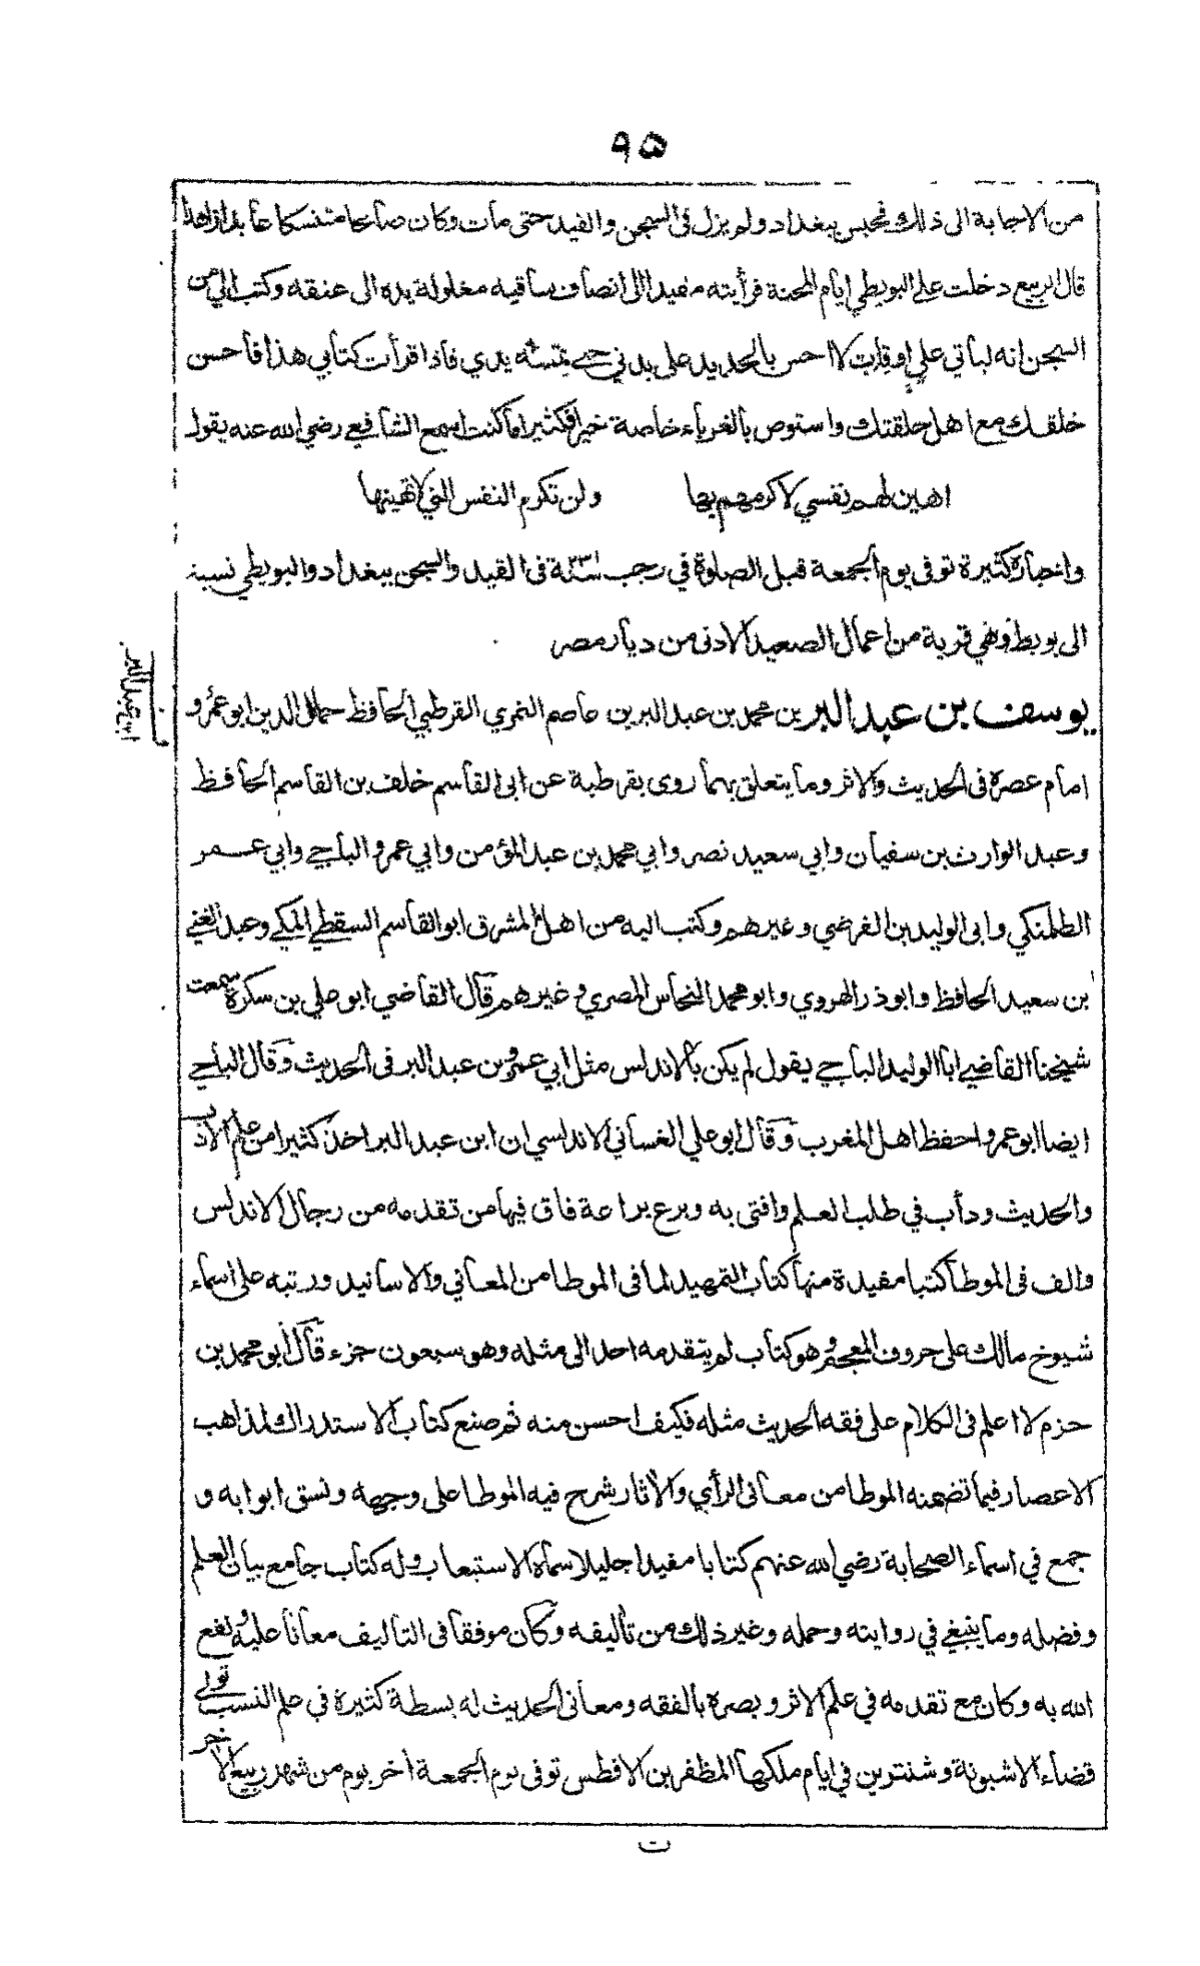 ٩٥
من الاجابة الى ذلك فحبس ببغداد ولم يزل في السجن والقيد حتى مات وكان صالحا متنسكا عابدا زاهدا
قال الربيع دخلت على البويطي ايام المحنة فرأيته مقيدا الى انصاف ساقيه مغلولة يده الى عنقه وكتب الي من
السجن انه ليأتي علي اوقات لا احس بالحديد على بدني حتى تمسه يدي فاذا قرأت كتابي هذا فأحسن
خلقك مع اهل حلقتك واستوص بالغرباء خاصة خيرا فكثيرا ما كنت اسمع الشافعي رضي الله عنه يقول
اهين لهم نفسي لاكرمهم بها ولن تكرم النفس التي لا تهينها
واخباره كثيرة توفى يوم الجمعة قبل الصلوة في رجب سنة ٢٣١ في القيد والسجن ببغداد والبويطي نسبة
الى بويط وهي قرية من اعمال الصعيد الادنى من ديار مصر
يوسف بن عبد البر بن محمد بن عبد البر بن عاصم النمري القرطبي الحافظ جمال الدين ابو عمرو
ابن عبد البر
امام عصره في الحديث والاثر وما يتعلق بهما روى بقرطبة عن ابي القاسم خلف بن القاسم الحافظ
وعبد الوارث بن سفيان وابي سعيد نصر وابي محمد بن عبد المؤمن وابي عمرو الباجي وابي عمر
الطلمنكي وابي الوليد بن الفرضي وغيرهم وكتب اليه من اهل المشرق ابو القاسم السقطي المكي وعبد الغني
بن سعيد الحافظ وابو ذر الهروي وابو محمد النحاس المصري وغيرهم قال القاضي ابو علي بن سكرة سمعت
شيخنا القاضي ابا الوليد الباجي يقول لم يكن بالاندلس مثل ابي عمرو بن عبد البر في الحديث وقال الباجي
ايضا ابو عمرو احفظ اهل المغرب وقال ابو علي الغساني الاندلسي ان ابن عبد البر اخذ كثيرا من علم الادب
والحديث ودأب في طلب العلم وافتى به وبرع براعة فاق فيها من تقدمه من رجال الاندلس
والف في الموطأ كتبا مفيدة منها كتاب التمهيد لما في الموطا من المعاني والاسانيد ورتبه على اسماء
شيوخ مالك على حروف المعجم وهو كتاب لم يتقدمه احد الى مثله وهو سبعون جزء قال ابو محمد بن
حزم لا اعلم في الكلام على فقه الحديث مثله فكيف احسن منه ثم صنع كتاب الاستدراك لمذاهب
الاعصار فيما تضمنه الموطا من معاني الرأي والاثار شرح فيه الموطا على وجهه ونسق ابوابه و
جمع في اسماء الصحابة رضي الله عنهم كتابا مفيدا جليلا سماه الاستيعاب وله كتاب جامع بيان العلم
وفضله وما ينبغي في روايته وحمله وغير ذلك من تأليفه وكان موفقا في التاليف معانا عليه ونفع
الله به وكان مع تقدمه في علم الاثر وبصره بالفقه ومعاني الحديث له بسطة كثيرة في علم النسب تولى
قضاء الاشبونة وشنترين في ايام ملكها المظفر بن الافطس توفى يوم الجمعة اخر يوم من شهر ربيع الاخر
ت